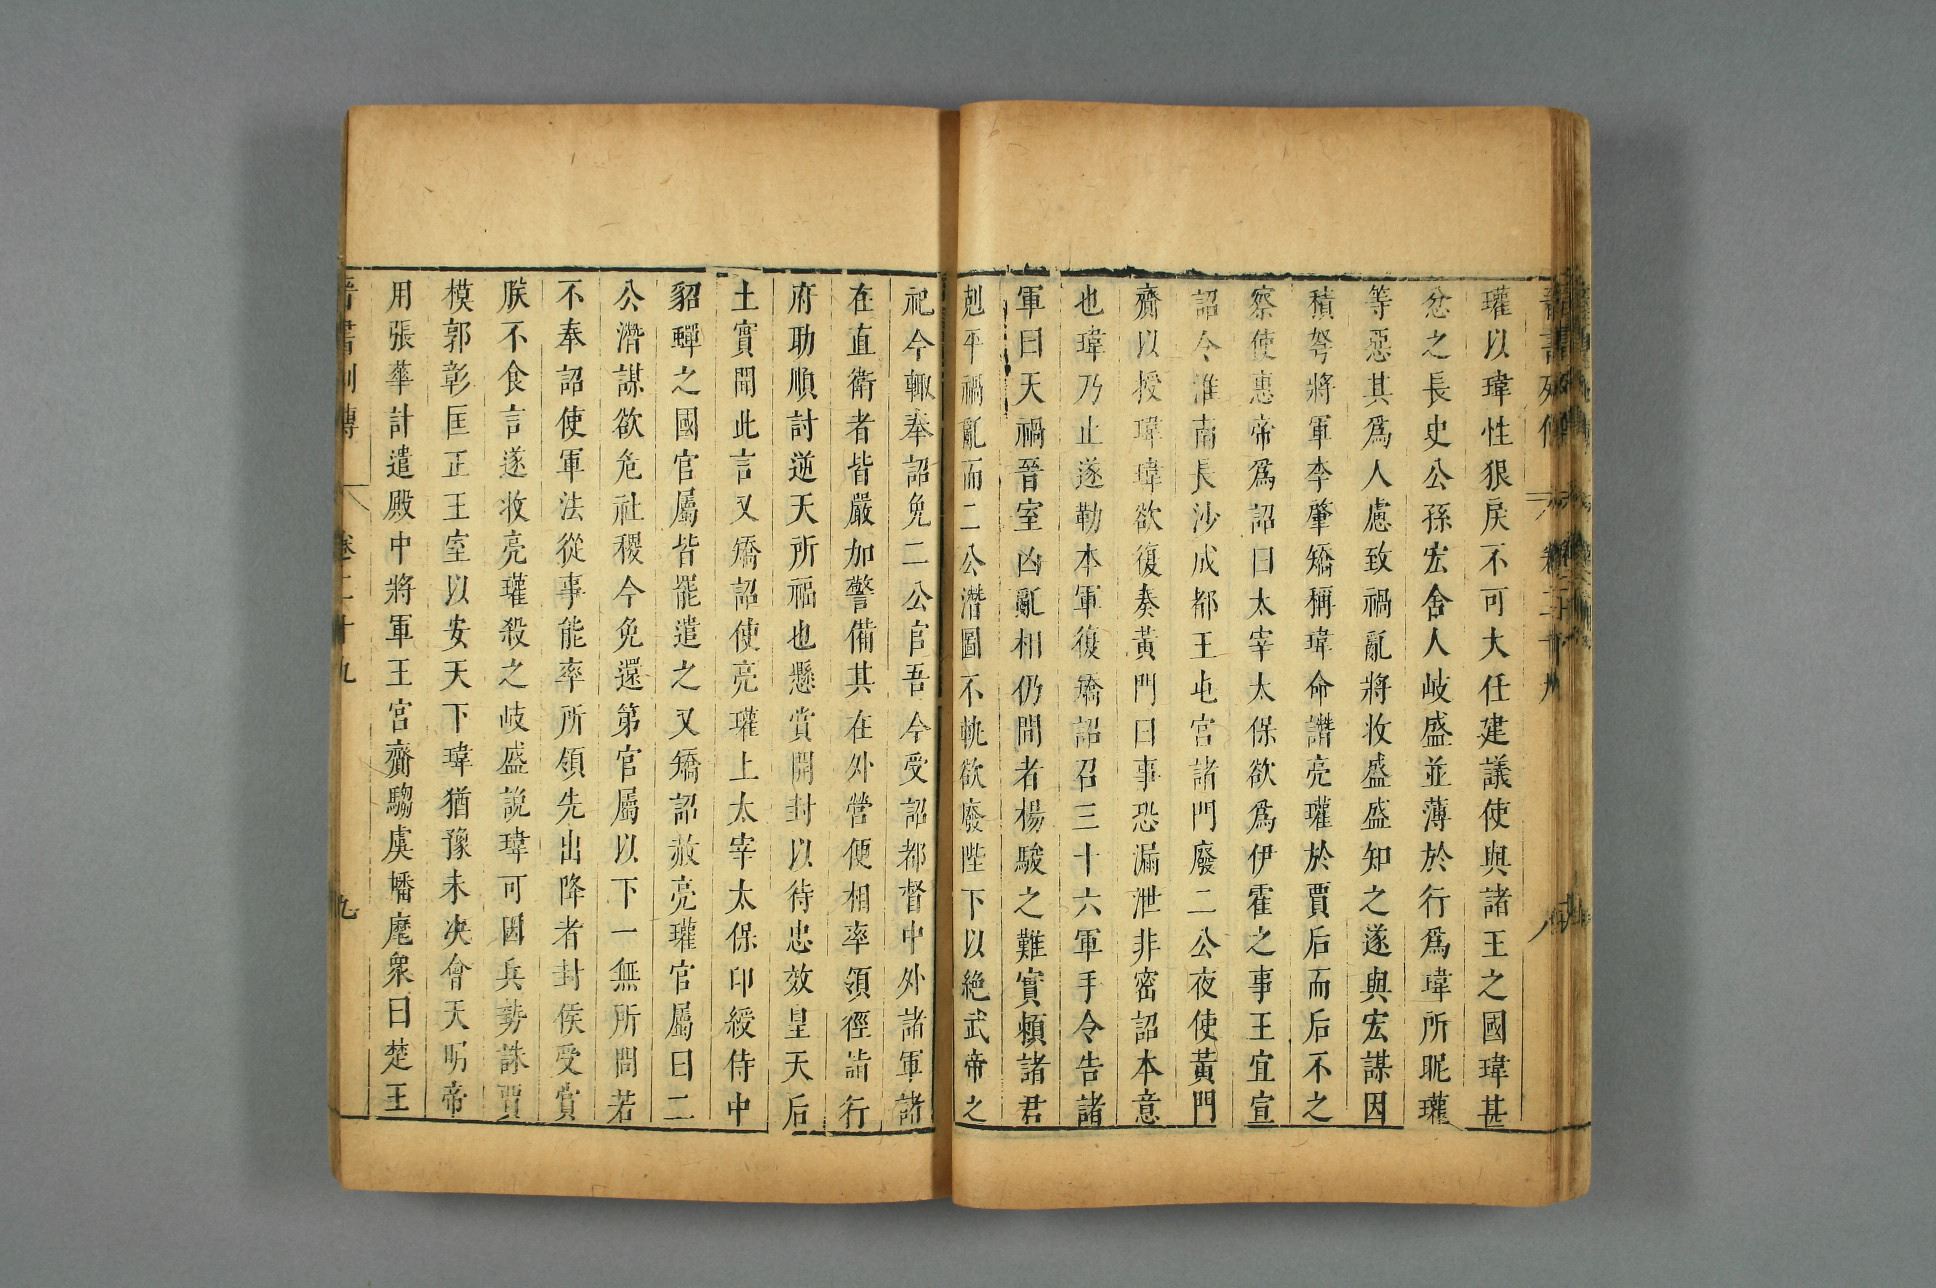 晉書列傳 卷二十九 八
瓘以瑋性狠戾不可大任建議使與諸王之國瑋甚
忿之長史公孫宏舍人岐盛並薄於行爲瑋所昵瓘
等惡其爲人慮致禍亂將收盛盛知之遂與宏謀因
積弩將軍李肇矯稱瑋命譖亮瓘於賈后而后不之
察使惠帝爲詔曰太宰太保欲爲伊霍之事王宜宣
詔令淮南長沙成都王屯宮諸門廢二公夜使黃門
齎以授瑋瑋欲復奏黃門曰事恐漏泄非密詔本意
也瑋乃止遂勒本軍復矯詔召三十六軍手令告諸
軍曰天禍晉室凶亂相仍間者楊駿之難實賴諸君
剋平禍亂而二公潛圖不軌欲廢陛下以絶武帝之
祀今輒奉詔免二公官吾今受詔都督中外諸軍諸
在直衞者皆嚴加警備其在外營便相率領徑詣行
府助順討逆天所福也懸賞開封以待忠效皇天后
土實聞此言又矯詔使亮瓘上太宰太保印綬侍中
貂蟬之國官屬皆罷遣之又矯詔赦亮瓘官屬曰二
公潛謀欲危社稷今免還第官屬以下一無所問若
不奉詔使軍法從事能率所領先出降者封侯受賞
朕不食言遂收亮瓘殺之岐盛說瑋可因兵勢誅賈
模郭彰匡正王室以安天下瑋猶豫未决會天明帝
用張華計遣殿中將軍王宮齎騶虞幡麾衆曰楚王
晉書列傳 卷二十九 九